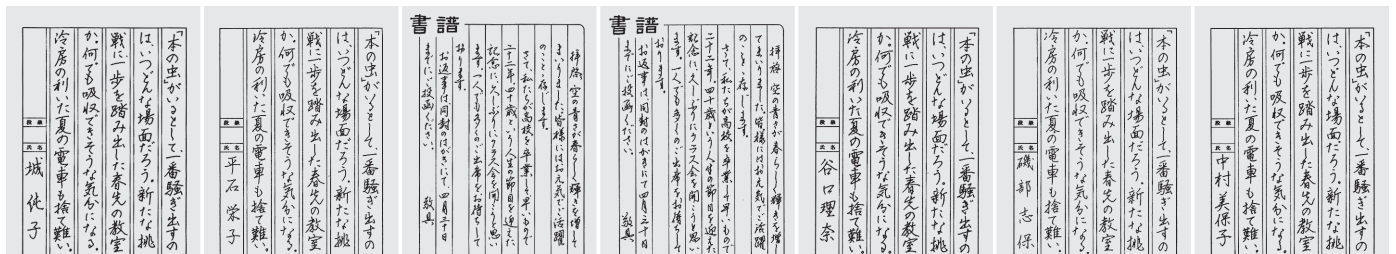 「本の虫」がいるとして、一番騒ぎ出すの
は、いつどんな場面だろう。新たな挑
戦に一歩を踏み出した春先の教室
か。何でも吸収できそうな気分になる。
冷房の利いた夏の電車も捨て難い。
段級
氏名
城 純子
「本の虫」がいるとして、一番騒ぎ出すの
は、いつどんな場面だろう。新たな挑
戦に一歩を踏み出した春先の教室
か。何でも吸収できそうな気分になる。
冷房の利いた夏の電車も捨て難い。
段級
氏名
平石栄子
書譜
拝啓 空の青さが春らしく輝きを増して
まいりました。皆様にはお元気でご活躍
のことと存じます。
さて、私たちが高校を卒業して早いもので
二十二年。四十歳という人生の節目を迎えた
記念に、久しぶりにクラス会を開こうと思い
ます。一人でも多くのご出席をお待ちして
おります。
お返事は同封のはがきにて、四月三十日
までにご投函ください。
敬具
書譜
拝啓 空の青さが春らしく輝きを増し
てまいりました。皆様にはお元気でご活躍
のことと存じます。
さて、私たちが高校を卒業して早いもので
二十二年。四十歳という人生の節目を迎えた
記念に、久しぶりにクラス会を開こうと思い
ます。一人でも多くのご出席をお待ちして
おります。
お返事は同封のはがきにて四月三十日
までにご投函ください。
敬具
「本の虫」がいるとして、一番騒ぎ出すの
は、いつどんな場面だろう。新たな挑
戦に一歩を踏み出した春先の教室
か。何でも吸収できそうな気分になる。
冷房の利いた夏の電車も捨て難い。
段級
氏名
谷口理奈
「本の虫」がいるとして、一番騒ぎ出すの
は、いつどんな場面だろう。新たな挑
戦に一歩を踏み出した春先の教室
か。何でも吸収できそうな気分になる。
冷房の利いた夏の電車も捨て難い。
段級
氏名
磯部志保
「本の虫」がいるとして、一番騒ぎ出すの
は、いつどんな場面だろう。新たな挑
戦に一歩を踏み出した春先の教室
か。何でも吸収できそうな気分になる。
冷房の利いた夏の電車も捨て難い。
段級
氏名
中村美保子